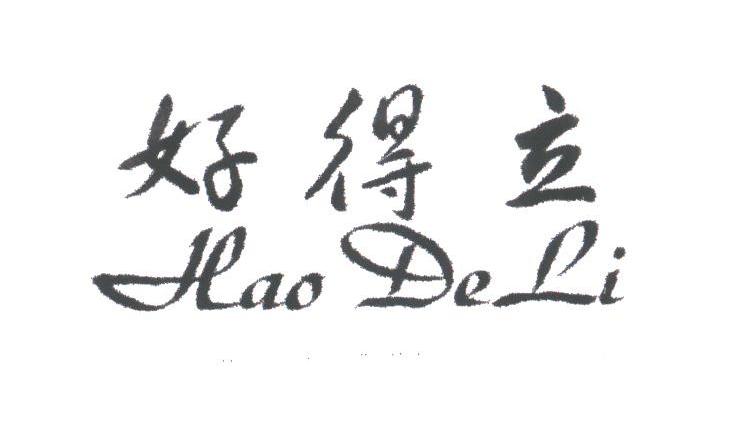 好得立
Hao De Li